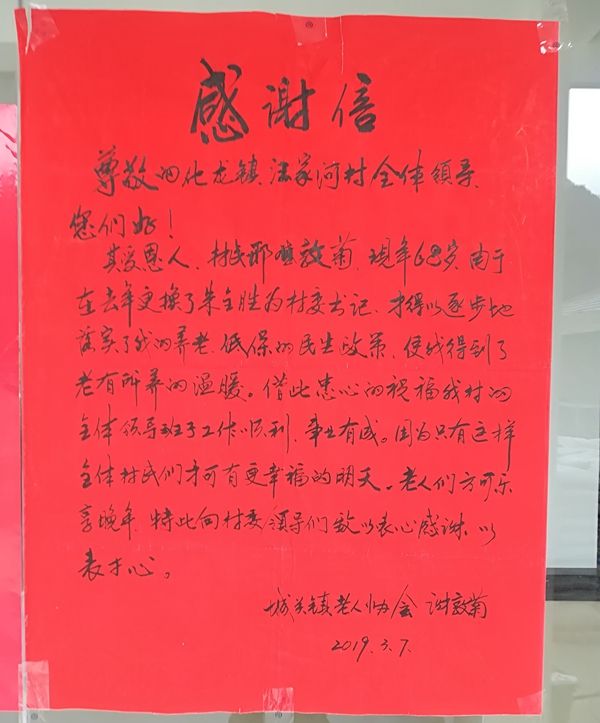 感谢信
尊敬的化龙镇汪家河村全体领导
您们好！
其受恩人、村民 敦菊，现年68岁，由于
在去年更换了朱全胜为村委书记，才得以逐步地
落实了我的养老、低保的民生政策，使我得到了
老有所养的温暖。借此忠心的祝福我村的
全体领导班子工作顺利、事业有成。因为只有这样
全体村民们才可有更幸福的明天。老人们方可乐
享晚年，特此向村委领导们致以衷心感谢，以
表寸心。
城关镇老人协会 谢敦菊
2019.3.7.